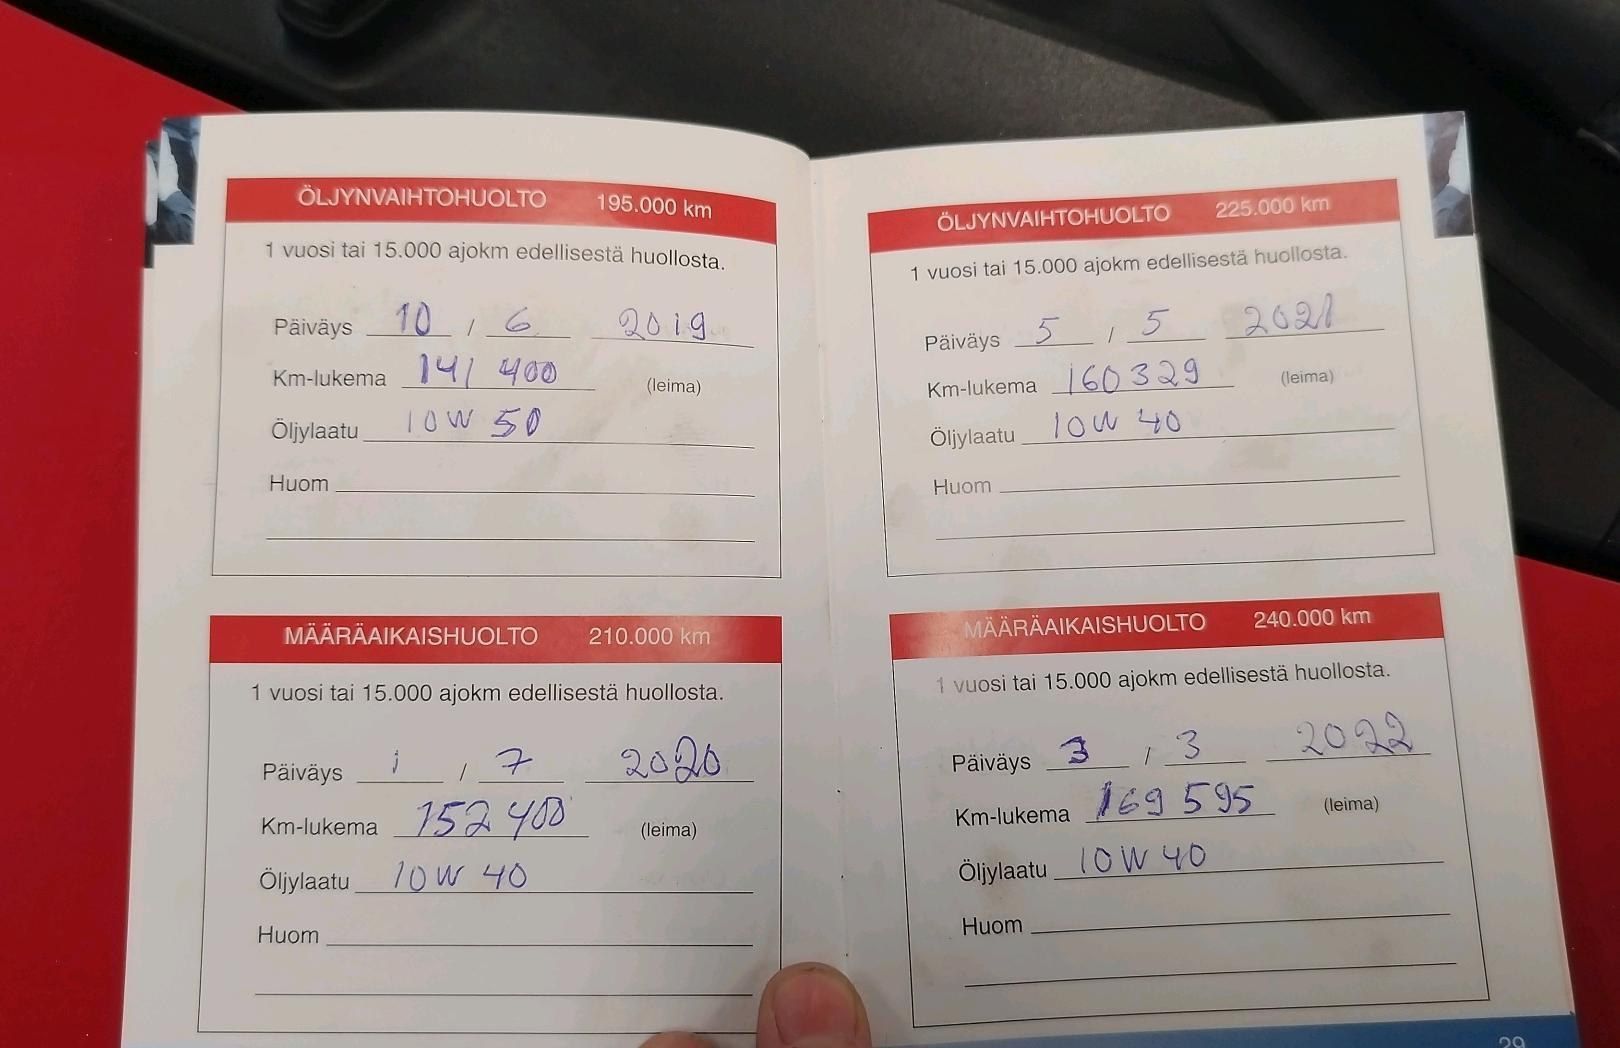 ÖLJYNVAIHTOHUOLTO 195.000 km
1 vuosi tai 15.000 ajokm edellisestä huollosta.
Päiväys 10 / 6 2019
Km-lukema 141 400 (leima)
Öljylaatu 10W 50
Huom
MÄÄRÄAIKAISHUOLTO 210.000 km
1 vuosi tai 15.000 ajokm edellisestä huollosta.
Päiväys 1 / 7 2020
Km-lukema 152 400 (leima)
Öljylaatu 10W 40
Huom
ÖLJYNVAIHTOHUOLTO 225.000 km
1 vuosi tai 15.000 ajokm edellisestä huollosta.
Päiväys 5 / 5 2021
Km-lukema 160329 (leima)
Öljylaatu 10W 40
Huom
MÄÄRÄAIKAISHUOLTO 240.000 km
1 vuosi tai 15.000 ajokm edellisestä huollosta.
Päiväys 3 / 3 2022
Km-lukema 169 595 (leima)
Öljylaatu 10W 40
Huom
29